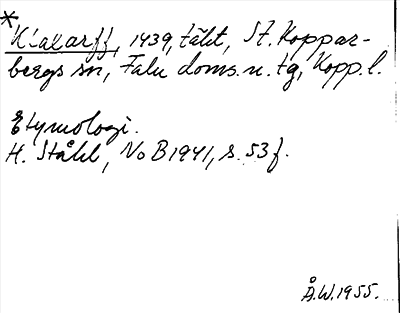 *
Klaxarff, 1439, täkt, St. Koppar-
bergs sn, Falu doms. o. tg, Kopp. l.
Etymologi.
H. Ståhl, NoB 1941, s. 53 f.
Å.W. 1955.